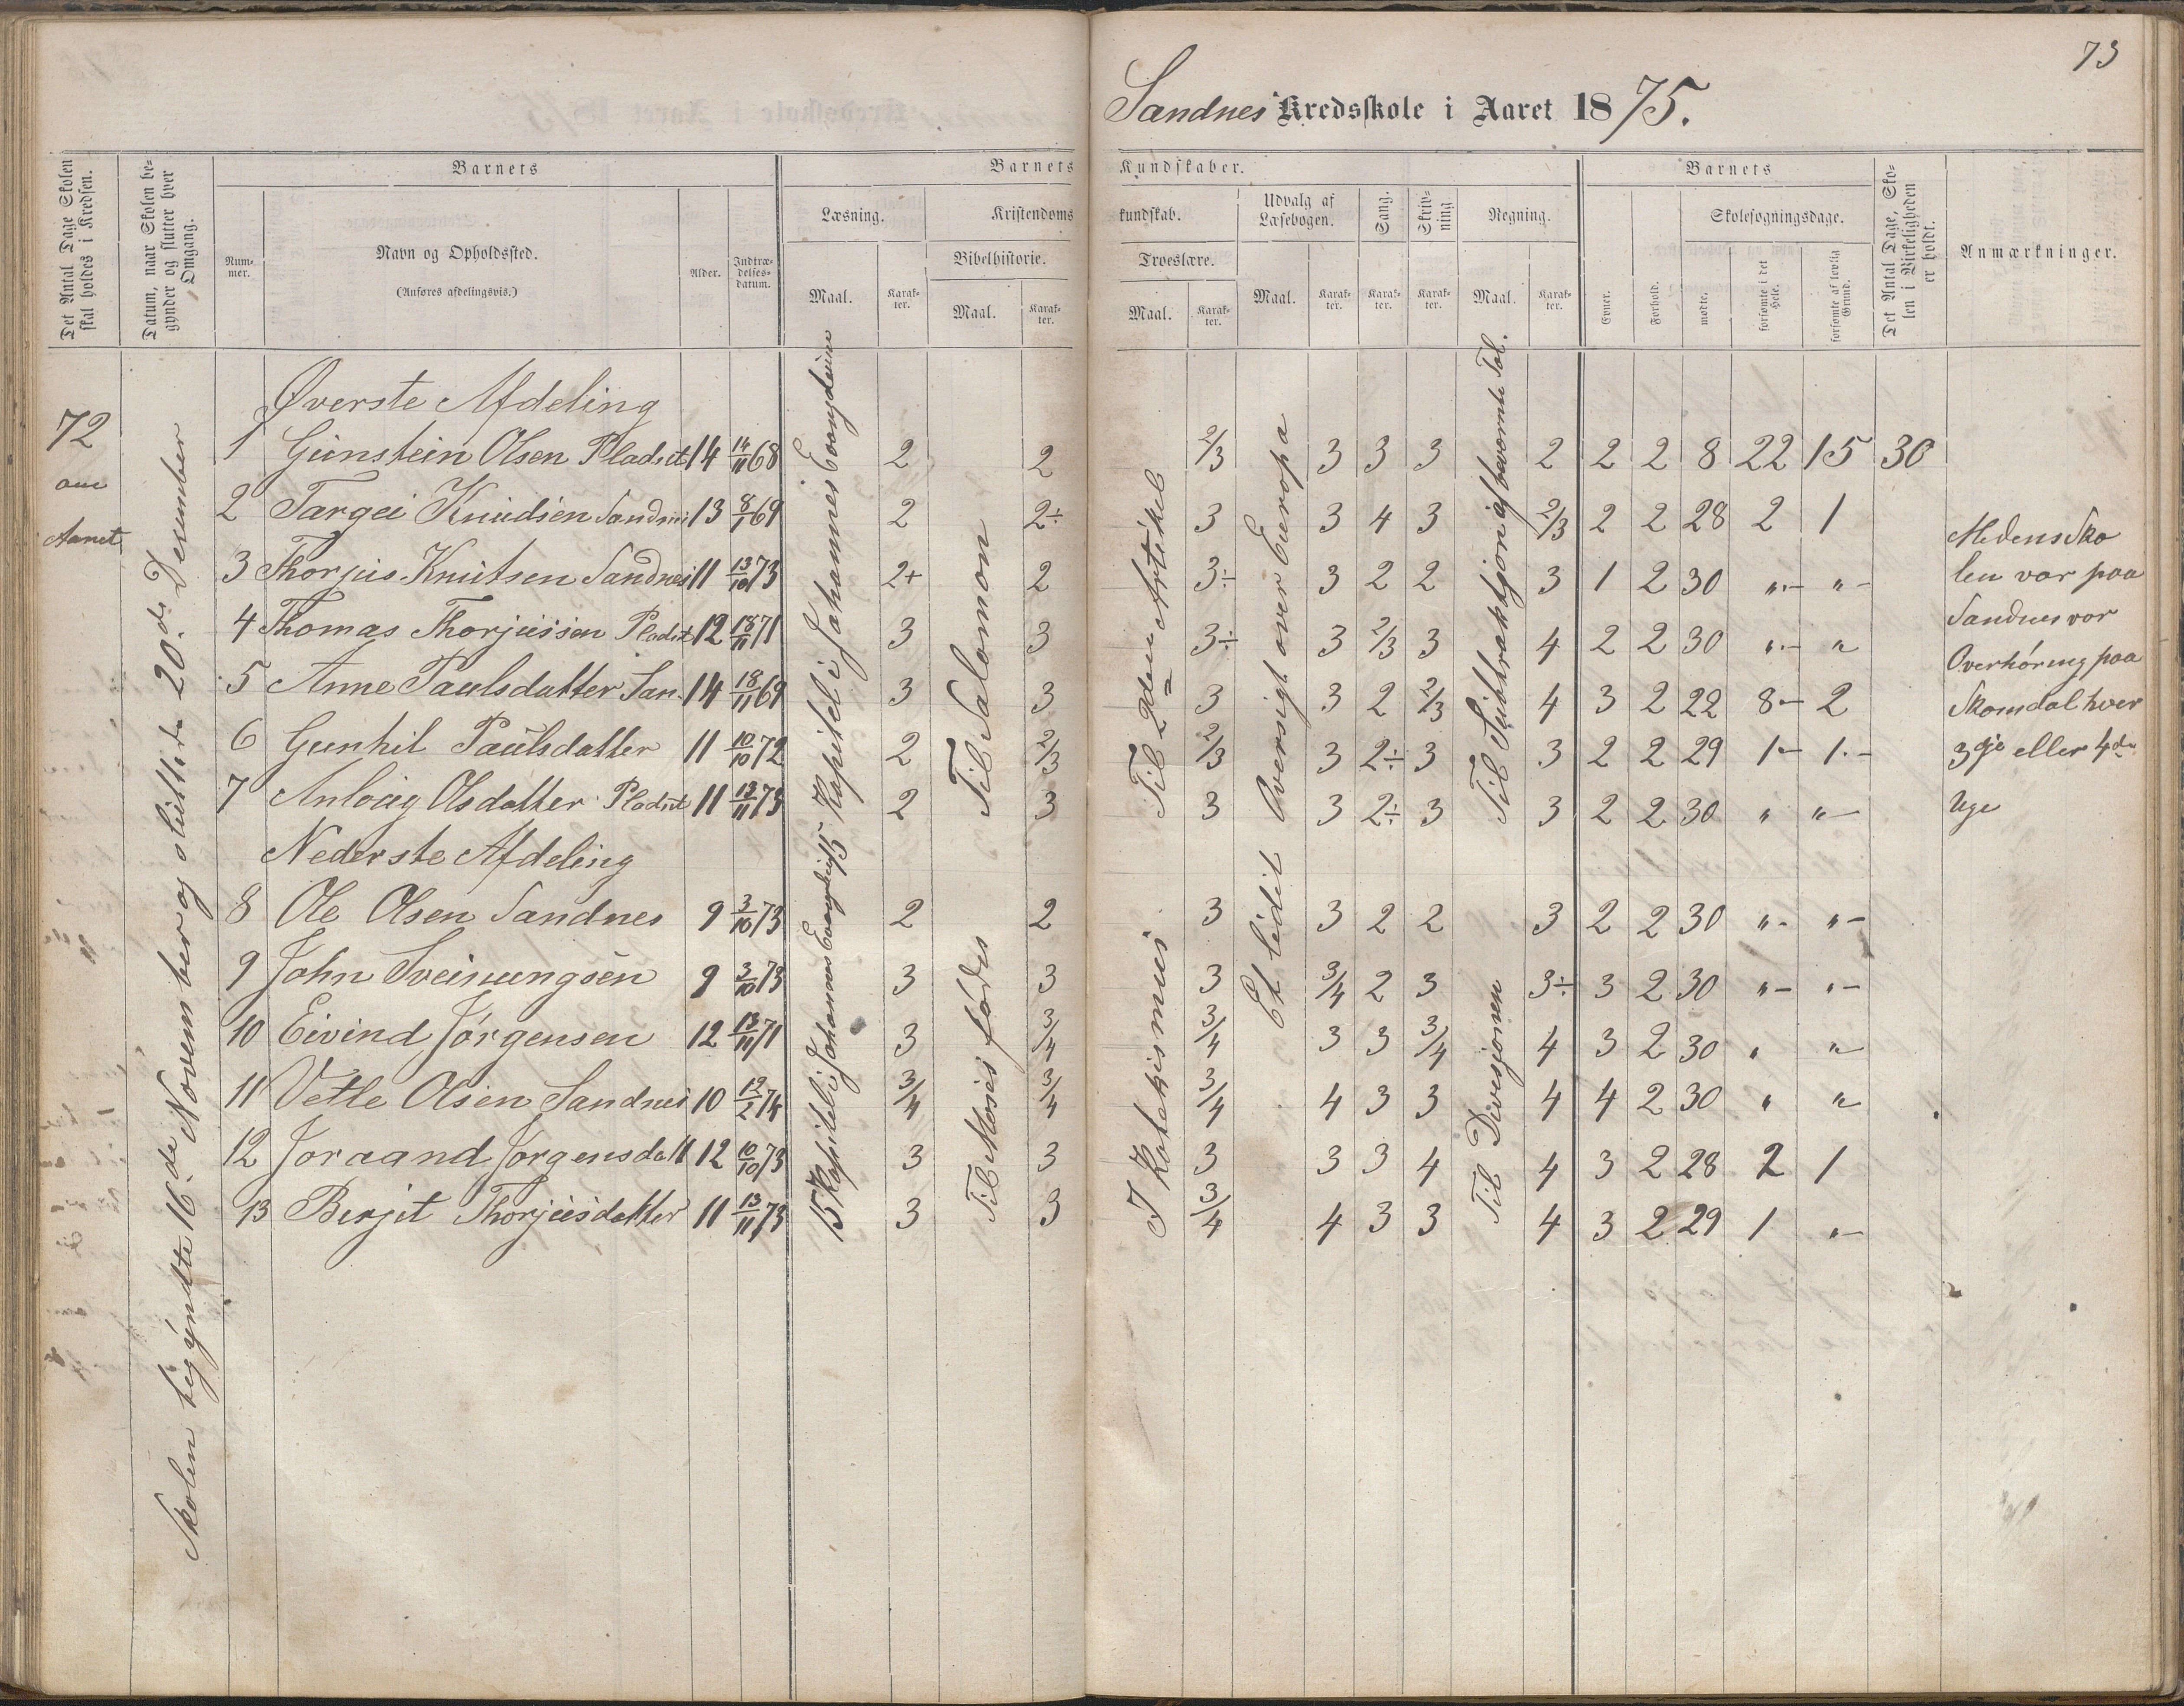 73
Sandnes Kredsskole i Aaret 1875.
Det Antal Dage Skolen skal holdes i Kredsen.
Datum, naar Skolen begynder og slutter hver Omgang.
Barnets
Nummer.
Navn og Opholdssted.
(Anføres afdelingsvis.)
Alder.
Indtrædelsesdatum.
Barnets Kundskaber.
Læsning.
Maal.
Karakter.
Kristendomskundskab.
Bibelhistorie.
Maal.
Karakter.
Troeslære.
Maal.
Karakter.
Udvalg af Læsebogen.
Maal.
Karakter.
Sang.
Karakter.
Skrivning.
Karakter.
Regning.
Maal.
Karakter.
Barnets
Evner.
Forhold.
Skolesøgningsdage.
mødte.
forsømte i det Hele.
forsømte af lovlig Grund.
Det Antal Dage, Skolen i Virkeligheden er holdt.
Anmærkninger.
72
om
Aaret
Skolen begyndte 16de November og sluttede 20de Desember
Øverste Afdeling
1 Gunstein Olsen Pladset 14 14/11 68 2 2 2/3 3 3 3 2 2 2 8 22 15 30
2 Targei Knudsen Sandnes 13 8/1 69 2 2÷ 3 3 4 3 2/3 2 2 28 2 1
3 Thorjus Knutsen Sandnes 11 13/10 73 2+ 2 3÷ 3 2 2 3 1 2 30 „- „-
4 Thomas Thorjussen Pladset 12 18/11 71 3 3 3÷ 3 2/3 3 4 2 2 30 „- „
5 Anne Paulsdatter San. 14 18/11 69 3 3 3 3 2 2/3 4 3 2 22 8- 2
6 Gunhil Paulsdatter 11 10/10 72 2 2/3 2/3 3 2÷ 3 3 2 2 29 1- 1.-
7 Anlaug Olsdatter Pladset 11 13/11 73 2 3 3 3 2÷ 3 3 2 2 30 „ „-
Nederste Afdeling
8 Ole Olsen Sandnes 9 3/10 73 2 2 3 3 2 2 3 2 2 30 „- „-
9 John Sveinungsen 9 3/10 73 3 3 3 3/4 2 3 3÷ 3 2 30 „- „-
10 Eivind Jørgensen 12 13/11 71 3 3/4 3/4 3 3 3/4 4 3 2 30 „ „
11 Vetle Olsen Sandnes 10 12/2 74 3/4 3/4 3/4 4 3 3 4 4 2 30 „ „
12 Joraand Jørgensdatt 12 10/10 73 3 3 3 3 3 4 4 3 2 28 2 1
13 Birgit Thorjusdatter 11 13/11 73 3 3 3/4 4 3 3 4 3 2 29 1 „-
15 Kapitel i Johannes Evangelium
15 Kapitel i Johannes Evangelium
Til Salomon
Til Moses fødes
Til 2den Artikel
I Katekismus
Oversigt over Europa
Et lidet
Til Subtraktjon af benævnte Tal.
Til Divisjonen
Medens Sko
len var paa
Sandnes var
Overhøring paa
Skomdal hver
3dje eller 4de
Uge